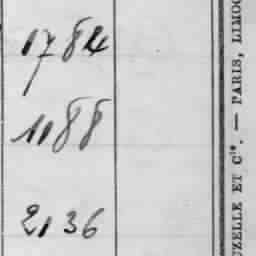 1784
1188
2136
UZELLE ET Cie. — PARIS, LIMOG